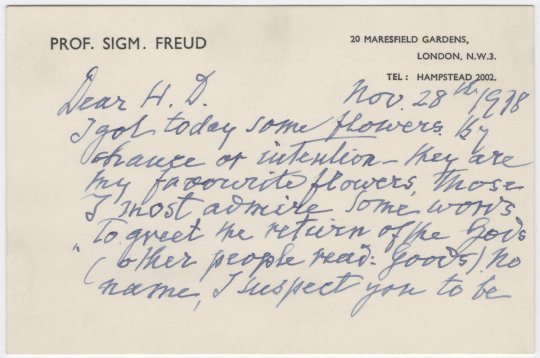 PROF. SIGM. FREUD
20 MARESFIELD GARDENS,
LONDON, N.W.3.
TEL: HAMPSTEAD 2002.
Dear H. D.
Nov. 28th 1938
I got today some flowers. By
chance or intention – they are
my favourite flowers, those
I most admire. Some words
„To greet the return of the Gods
(other people read: Goods). No
name, I suspect you to be